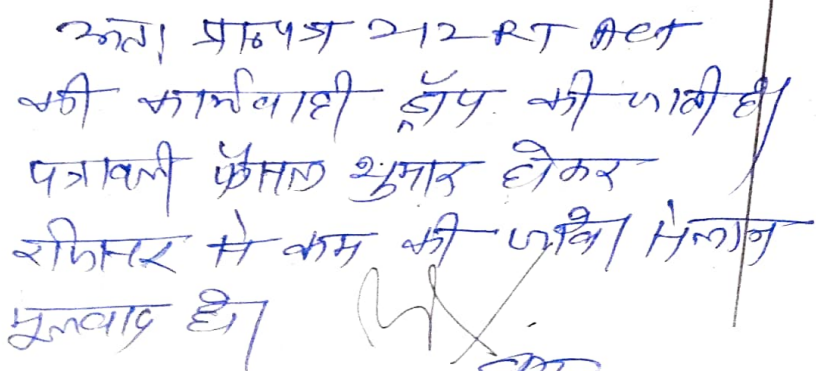 अतः प्रा०पत्र 212 RT Act
की कार्यवाही ड्रॉप की जाती है।
पत्रावली फैसल शुमार होकर
रजिस्टर से कम की जावे। संलग्न
मूलवाद हो।